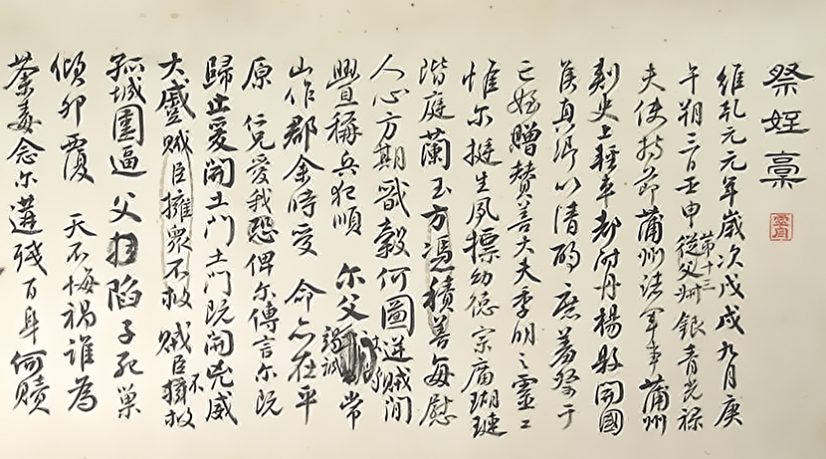 祭姪稾
維乾元元年歲次戊戌九月庚
午朔三日壬申第十三從父銀青光祿
夫使持節蒲州諸軍事蒲州
刾史上輕車都尉丹楊縣開國
侯真卿以清酌庶羞祭于
亡姪贈賛善大夫季明之靈
惟尔挺生夙標幼德宗廟瑚璉
階庭蘭玉方馮積善每慰
人心方期戩穀何圖逆賊閒
舋稱兵犯順 尔父竭誠常
山作郡余時受 命亦在平
原 仁兄愛我恐俾尔傳言尔既
歸止爰開土門土門既開兇威
大蹙賊臣擁衆不救 賊臣擁不救
孤城圍逼 父陷子死巢
傾卵覆 天不悔禍誰為
荼毒念尔遘殘百身何贖